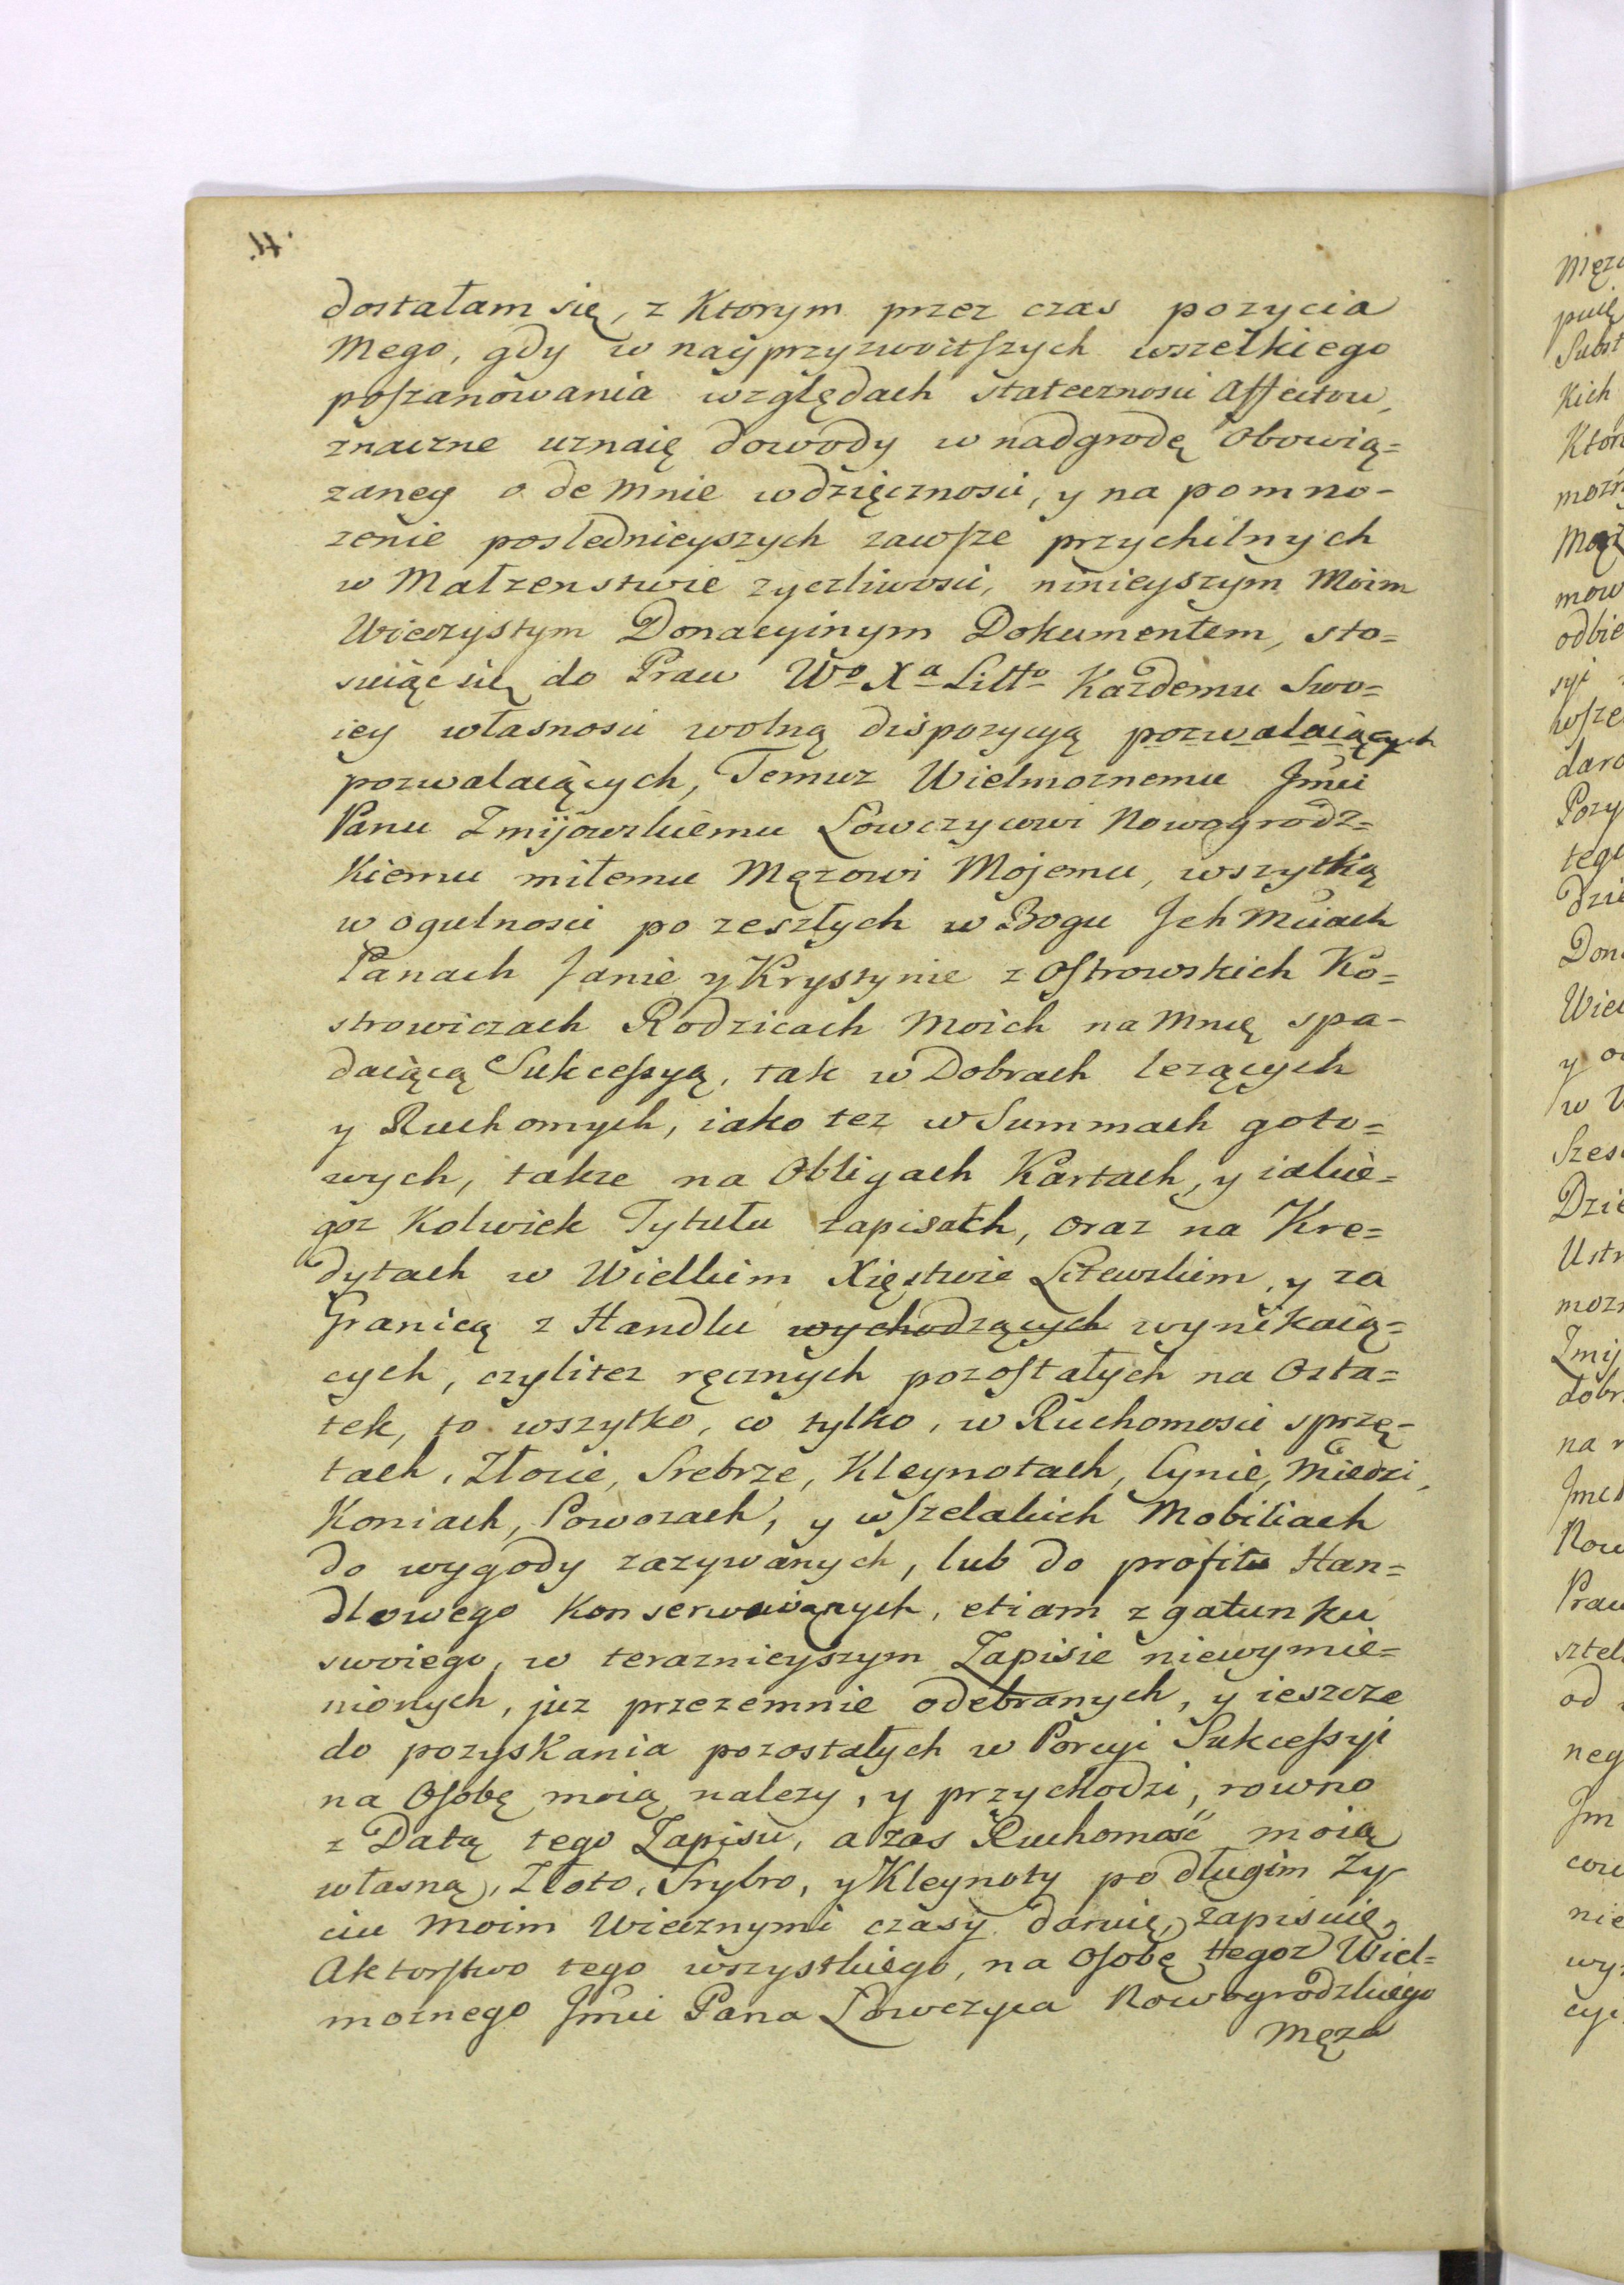 dostałam się, z Ktorym przez czas pozycia
Mego, gdy w nayprzyzwoitszych wszelkiego
poszanowania względach stateczności Affectow,
znaczne uznaię dowody w nadgrodę Obowią=
zaney odemnie wdzięcznosci, y na pomno-
zenie poslednieyszych zawsze przychilnych
w Małzenstwie zyczliwosci, ninieyszym Moim
Wieczystym Donacyinym Dokumentem, sto=
suiąc się do Praw Wo Xa Litto Kazdemu Swo=
iey własnosci wolną dispozycyą pozwalaiących
pozwalaiących, Temuz Wielmoznemu Jmci
Panu Zmijowskiemu Łowczycowi Nowogrodz=
Kiemu miłemu Męzowi Mojemu, wszytką
w ogulnosci po zeszłych w Bogu Jch Mciach
Panach Janie y Krystynie z Ostrowskich Ko=
strowiczach Rodzicach Moich na Mnię spa-
daiącą Sukcessyą, tak w Dobrach lezących
y Ruchomych, iako tez w Summach goto=
wych, takze na Obligach Kartach, y iakie=
goz Kolwiek Tytułu zapisach, oraz na Kre=
dytach w Wielkim Xięstwie Litewskim, y za
Granicą z Handlu wychodzących wynikaią=
cych, czylitez ręcznych pozostałych na Osta=
tek, to wszytko, co tylko, w Ruchomosci sprzę-
tach, Złocie, Srebrze, Kleynotach, Cynie, Miedzi,
Koniach, Powozach, y wszelakich Mobiliach
do wygody zazywanych, lub do profitu Han=
dlowego Konserwowanych, etiam z gatunku
swoiego, w teraznieyszym Zapisie niewymie=
nionych, juz przezemnie odebranych, y ieszcze
do pozyskania pozostałych w Porcyi Sukcessyi
na Osobę moią nalezy, y przychodzi, rowno
z Datą tego Zapisu, a zas Ruchomość moią
własną, Złoto, Srybro, y Kleynoty po długim Zy=
ciu Moim Wiecznymi czasy daruię, zapisuię,
Aktorstwo tego wszystkiego, na Osobę tegoz Wiel=
moznego Jmci Pana Łowczyca Nowogrodzkiego
Męza